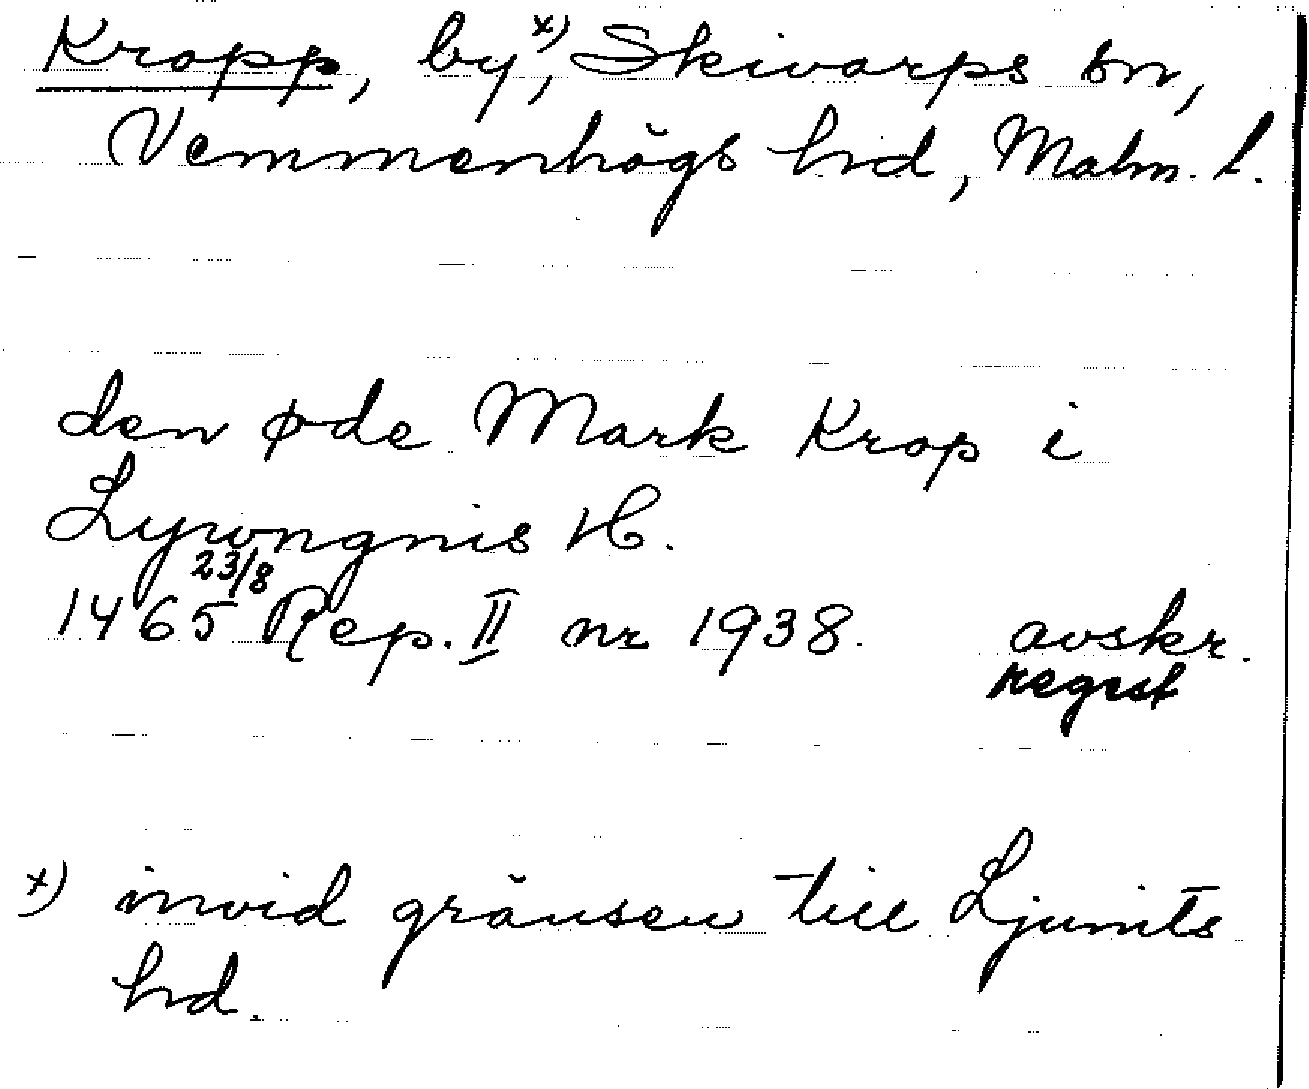 Kropp, by,x) Skivarps sn,
Vemmenhögs hrd, Malm. l.
den øde Mark Krop i
Lywngnis H.
1465 23/8 Rep. II nr 1938. avskr.
regest
x) invid gränsen till Ljunits
hrd.